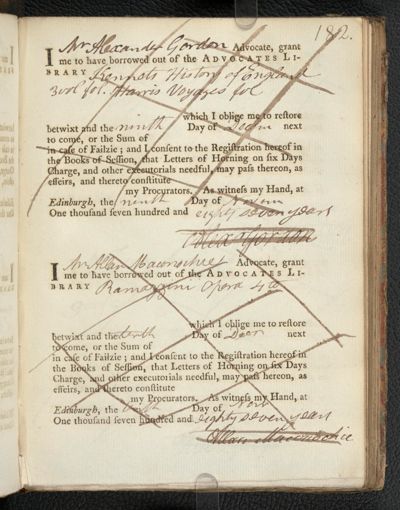 182.
I Mr Alexander Gordon Advocate, grant
me to have borrowed out of the ADVOCATES LI-
BRARY Kennets History of England
3 vol fol. Harris Voyages fol
which I oblige me to restore
betwixt and the ninth Day of Decem next
to come, or the Sum of
in case of Failzie; and I consent to the Registration hereof in
the Books of Session, that Letters of Horning on six Days
Charge, and other executorials needful, may pass thereon, as
effeirs, and thereto constitute
my Procurators. As witness my Hand, at
Edinburgh, the ninth Day of Novem
One thousand seven hundred and eighty seven years
Alexr Gordon
I Mr Allan Maconochie Advocate, grant
me to have borrowed out of the ADVOCATES LI-
BRARY Ramazzini Opera 4to
which I oblige me to restore
betwixt and the tenth Day of Decr next
to come, or the Sum of
in case of Failzie; and I consent to the Registration hereof in
the Books of Session, that Letters of Horning on six Days
Charge, and other executorials needful, may pass hereon, as
effeirs, and thereto constitute
my Procurators. As witness my Hand, at
Edinburgh, the tenth Day of Novr
One thousand seven hundred and eighty seven years
Allan Maconochie